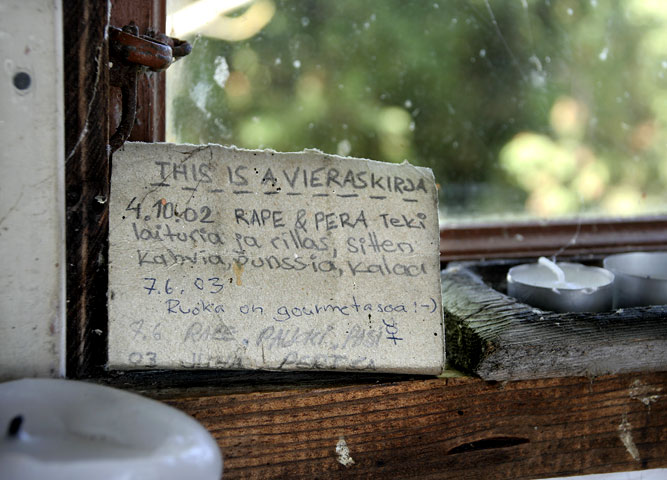 THIS IS A VIERASKIRJA
4.10.02 RAPE & PERA Teki
laituria ja rillas, sitten
kahvia, punssia, kalaa
7.6.03
Ruoka on gourmetasoa! :-)
7.6 RAPE, PASI
03 JUHA PERTSA